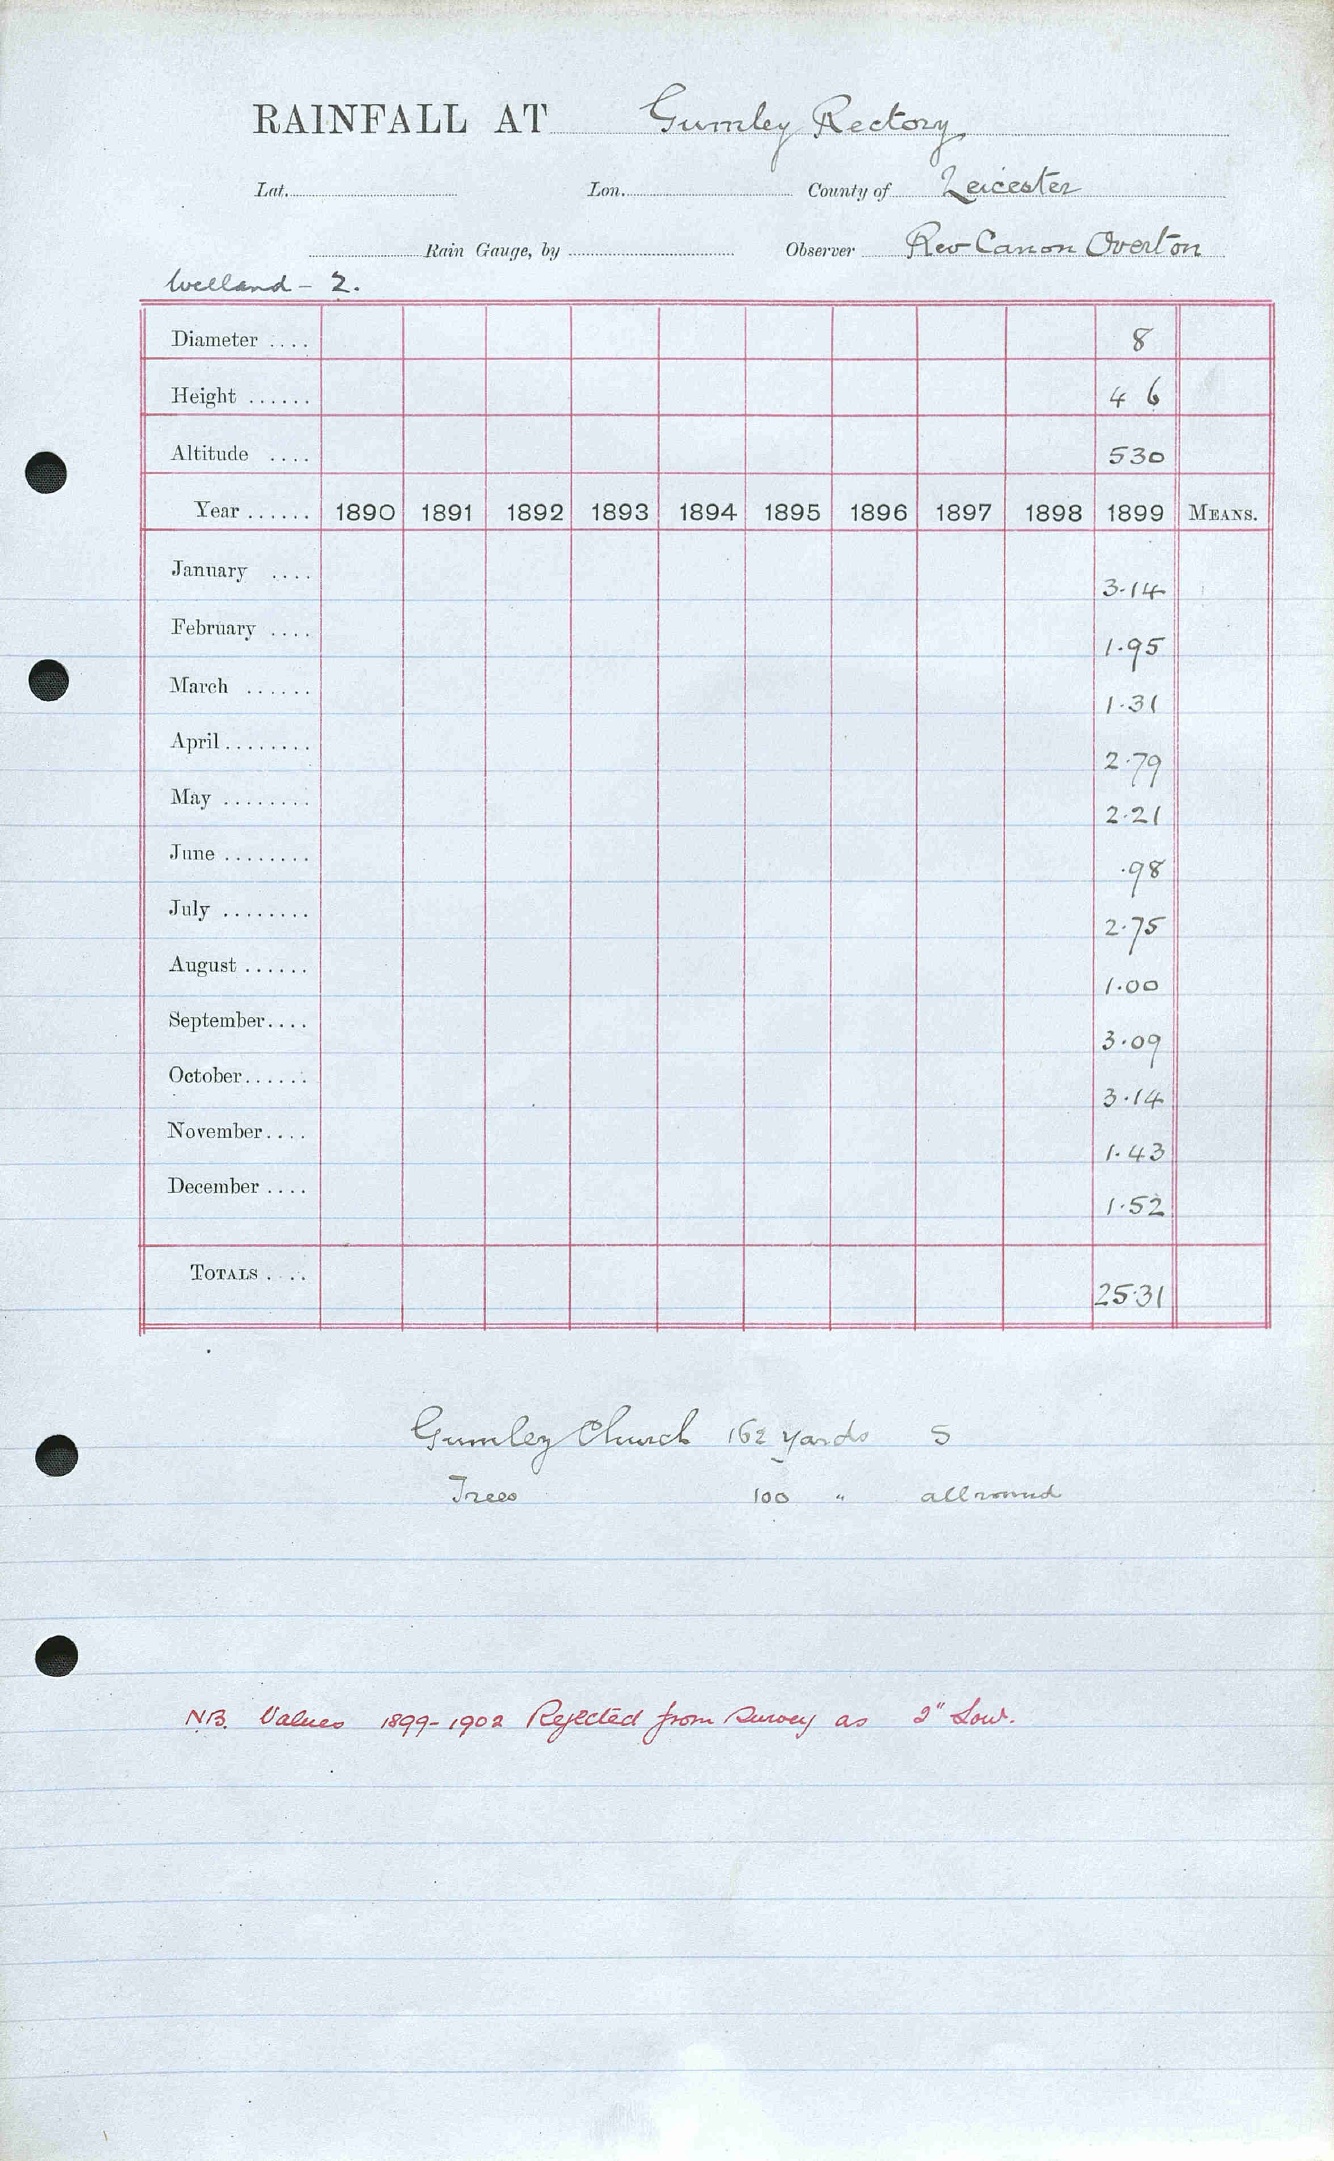 RAINFALL AT Gumley Rectory
Lat. Lon. County of Leicester
Rain Gauge, by Observer Rev Canon Overton
Welland - 2.
Diameter .... 8
Height ...... 4 6
Altitude .... 530
Year ...... 1890 1891 1892 1893 1894 1895 1896 1897 1898 1899 MEANS.
January .... 3.14
February .... 1.95
March ...... 1.31
April ........ 2.79
May ........ 2.21
June ........ .98
July ........ 2.75
August ...... 1.00
September.... 3.09
October...... 3.14
November.... 1.43
December .... 1.52
TOTALS .... 25.31
Gumley Church 162 yards S
Trees 100 " all round
NB. Values 1899-1902 Rejected from Survey as 2" Low.